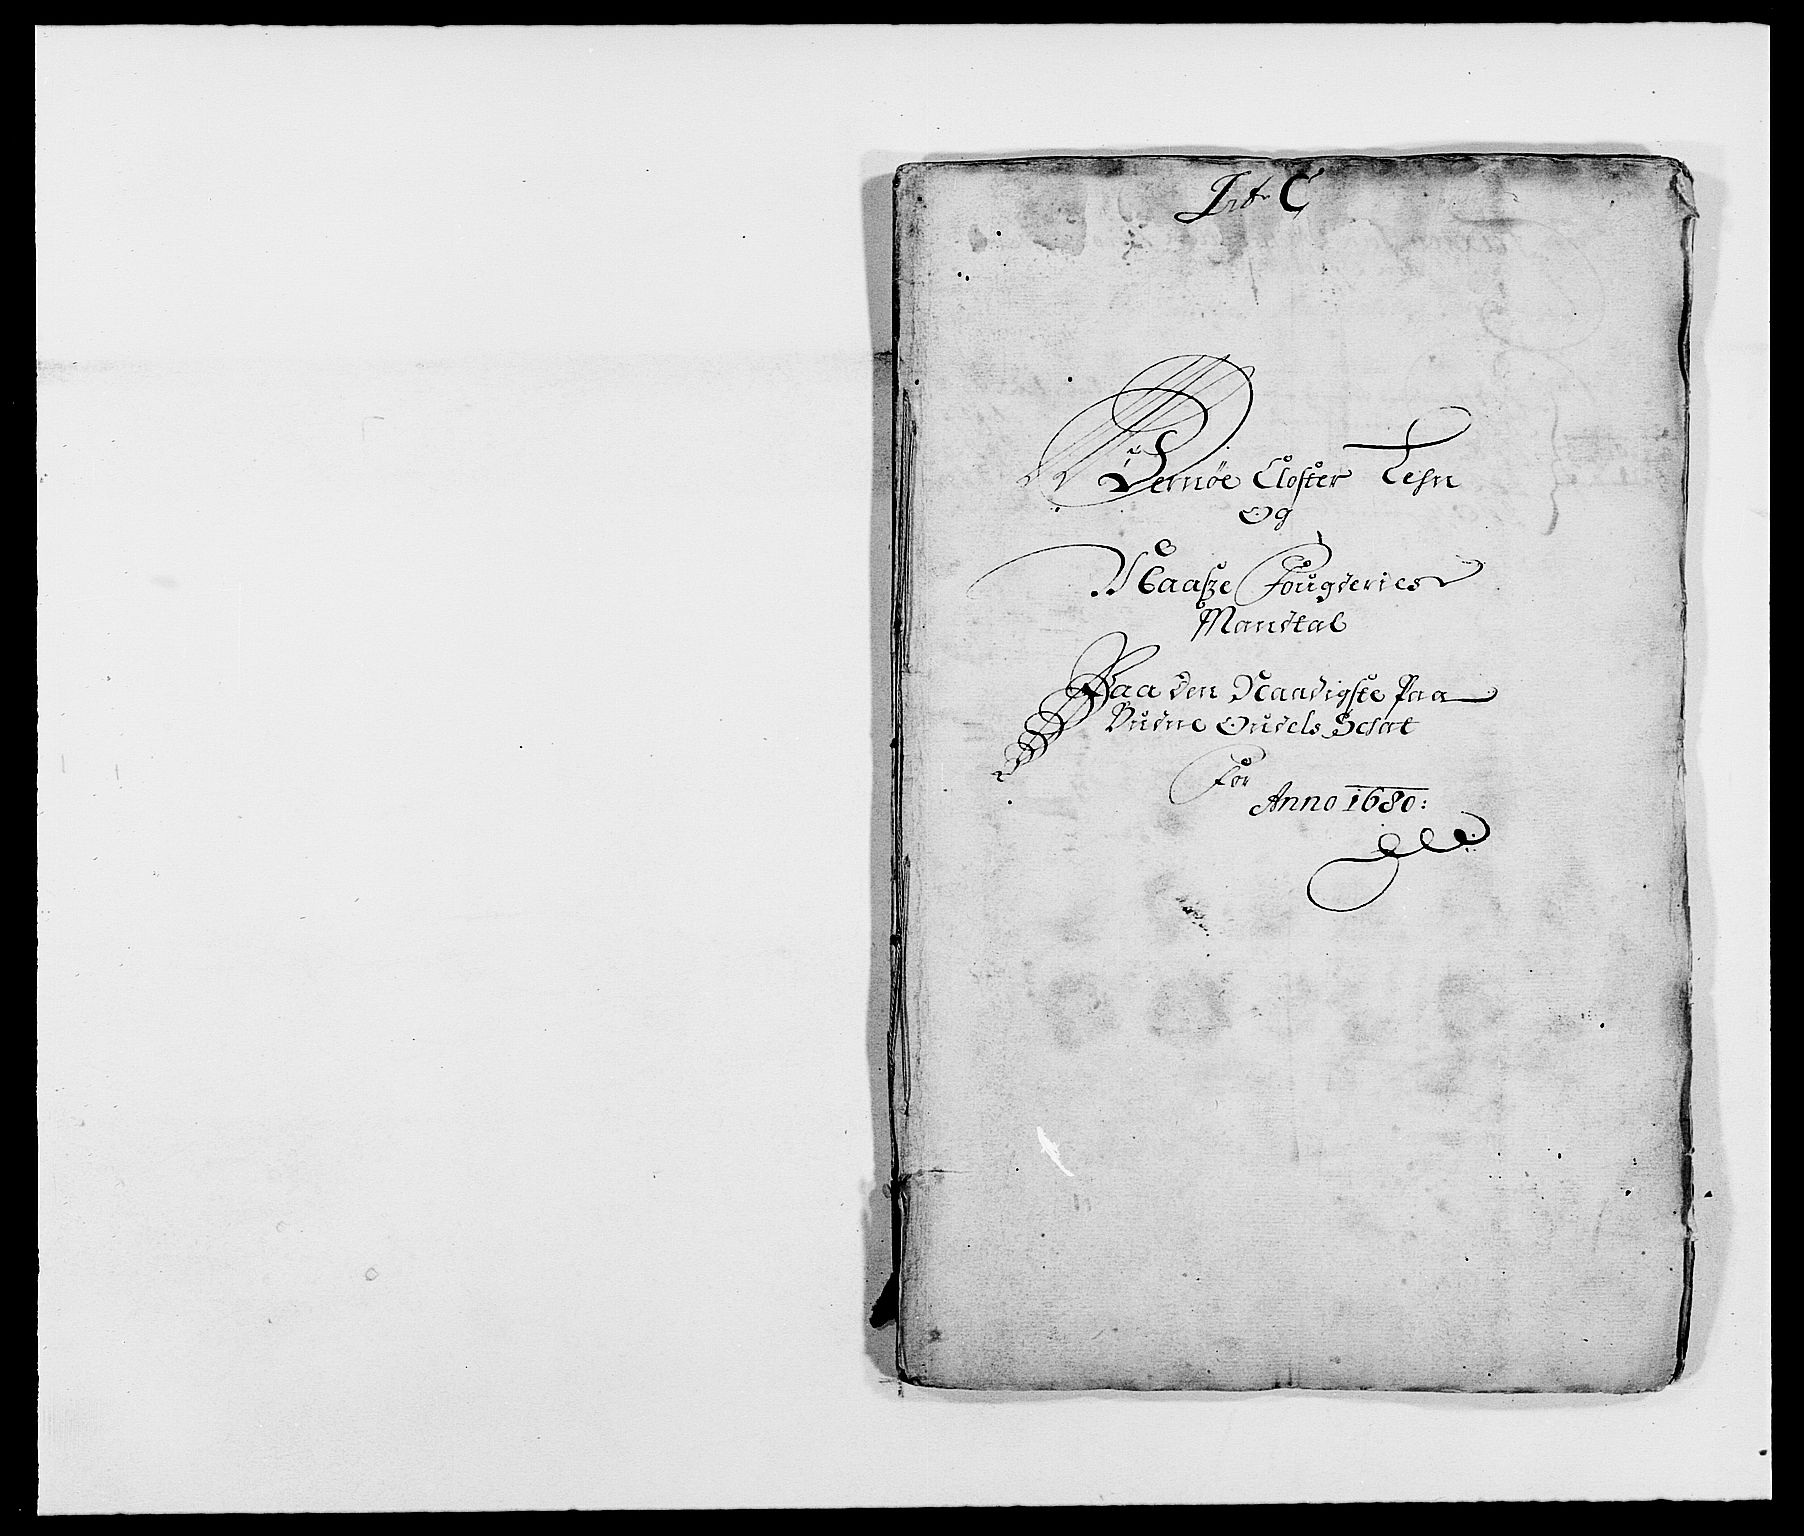 Lit. C
Vernøe Closter Lehn
Og
Vaasze Fougderies
Mandtal
Paa den Naadigste Paa
Budne Ondels Schat
For
Anno 1680: